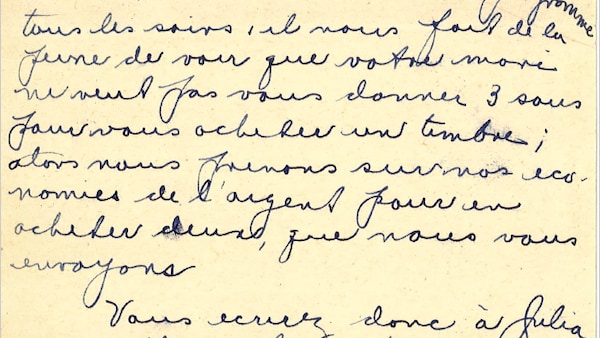 promme
tous les soirs, il nous fait de la
peine de voir que votre mari
ne veut pas vous donner 3 sous
pour vous acheter un timbre;
alors nous prenons sur nos éco-
nomies de l'argent pour en
acheter deux, que nous vous
envoyons
Vous ecriez donc à Julia